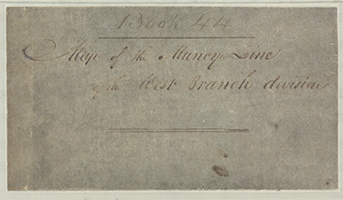 Book 44
Map of the Muncy Line
of the West Branch division